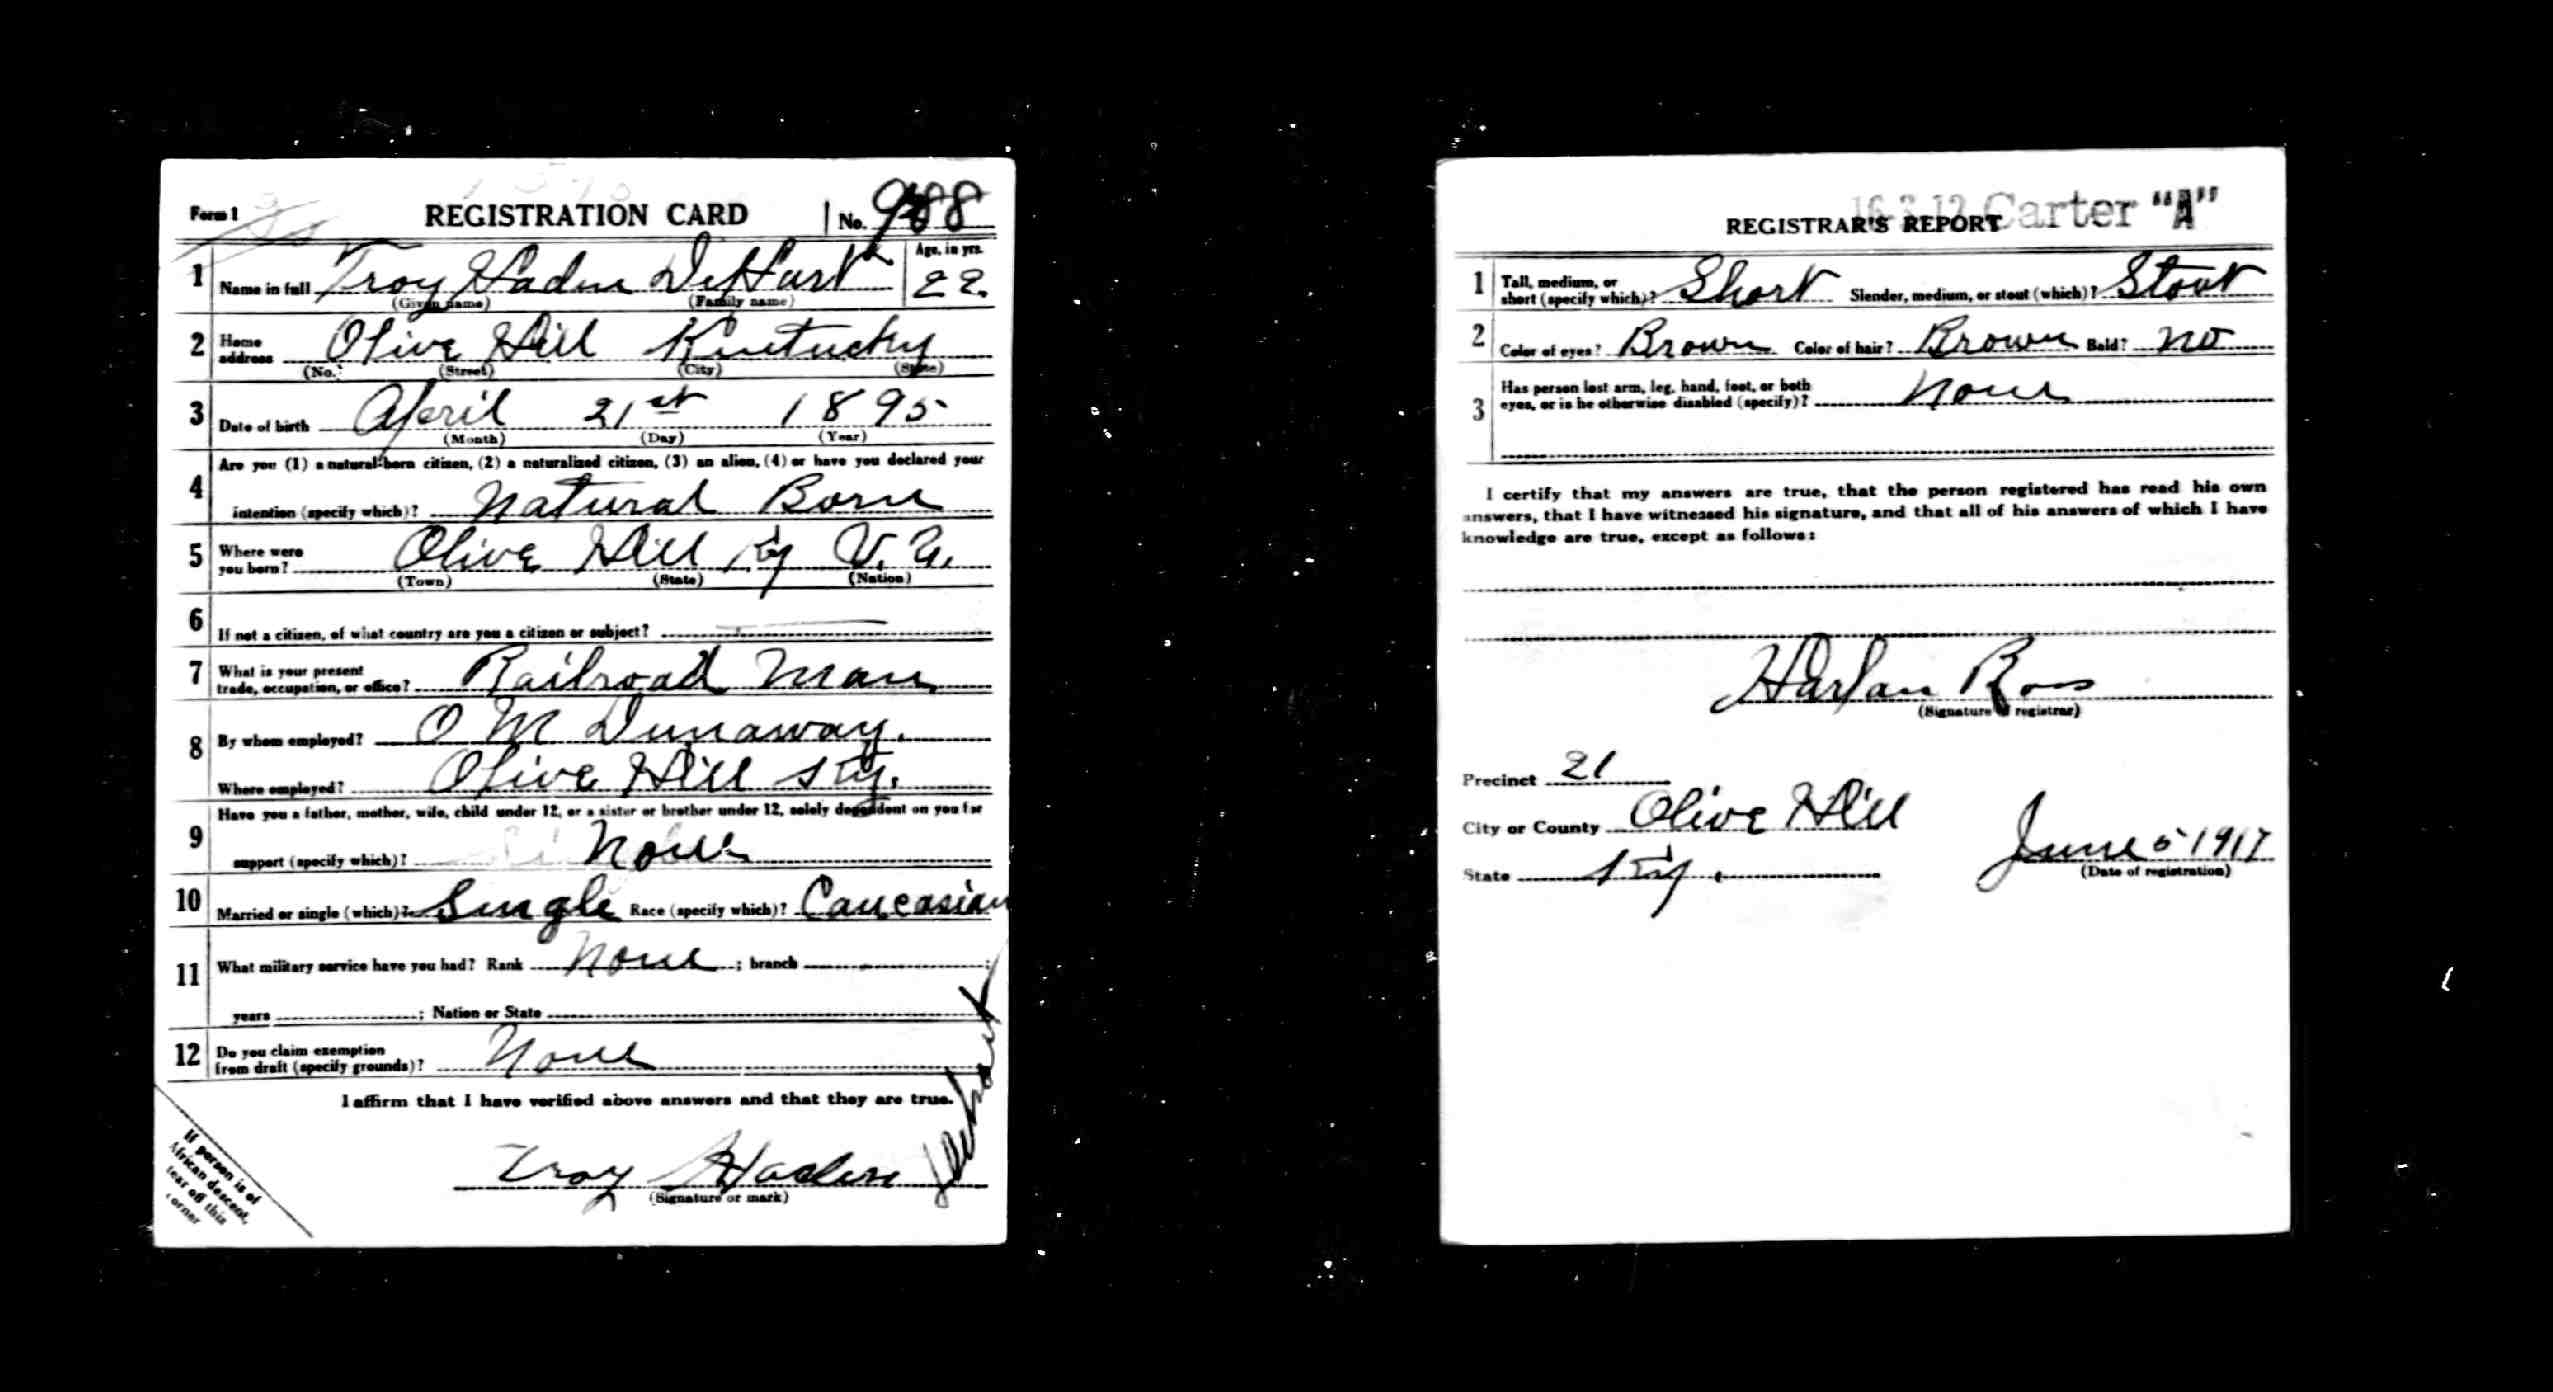 Form 1 REGISTRATION CARD No. 988
1 Name in full Troy Haden DeHart Age, in yrs. 22
(Given name) (Family name)
2 Home address Olive Hill Kentucky
(No.) (Street) (City) (State)
3 Date of birth April 21st 1895
(Month) (Day) (Year)
4 Are you (1) a natural-born citizen, (2) a naturalized citizen, (3) an alien, (4) or have you declared your
intention (specify which)? Natural Born
5 Where were you born? Olive Hill Ky U.S.
(Town) (State) (Nation)
6 If not a citizen, of what country are you a citizen or subject?
7 What is your present
trade, occupation, or office? Railroad Man
8 By whom employed? O M Dunaway.
Where employed? Olive Hill Ky.
9 Have you a father, mother, wife, child under 12, or a sister or brother under 12, solely dependent on you for
support (specify which)? None
10 Married or single (which)? Single Race (specify which)? Caucasian
11 What military service have you had? Rank None ; branch ;
years ; Nation or State
12 Do you claim exemption
from draft (specify grounds)? None
I affirm that I have verified above answers and that they are true.
Troy Haden Dehart
(Signature or mark)
If person is of
African descent,
tear off this
corner
Carter "A"
REGISTRAR'S REPORT
1 Tall, medium, or
short (specify which)? Short Slender, medium, or stout (which)? Stout
2 Color of eyes? Brown Color of hair? Brown Bald? No
3 Has person lost arm, leg, hand, foot, or both
eyes, or is he otherwise disabled (specify)? None
I certify that my answers are true, that the person registered has read his own
answers, that I have witnessed his signature, and that all of his answers of which I have
knowledge are true, except as follows:
Harlan Ross
(Signature of registrar)
Precinct 21
City or County Olive Hill
State Ky. June 5 1917
(Date of registration)